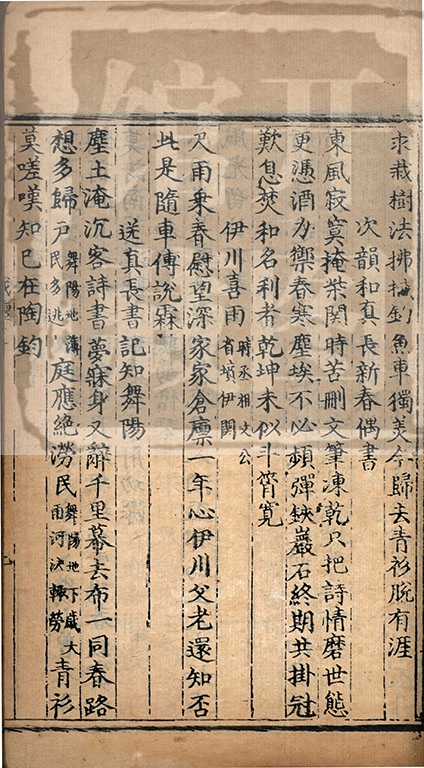 求栽樹法拂檝釣魚車獨羨今歸去青衫脫有涯
次韻和真長新春偶書
東風寂寞掩柴関時苦刪文筆凍乾只把詩情磨世態
更憑酒力禦春寒塵埃不必頻彈鋏巖石終期共掛冠
歎息焚和名利者乾坤未似斗筲寬
伊川喜雨時丞相文公省墳伊闕
尺雨乘春慰望深家家倉廪一年心伊川父老還知否
此是隨車傳說霖
送真長書記知舞陽
塵土淹沉客詩書夢寐身又辭千里幕去布一同春路
想多歸戶舞陽地薄民多逃庭應絕澇民舞陽地下歲大雨河決輙勞青衫
莫嗟嘆知已在陶鈞